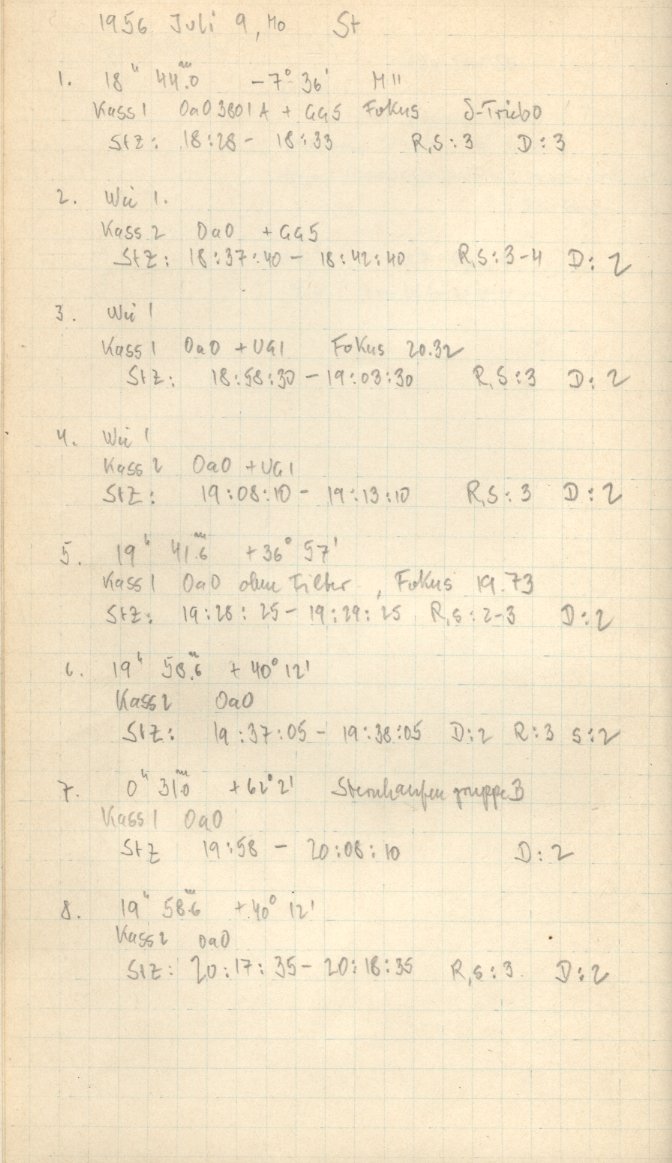 1956 Juli 9, Mo St
1. 18ʰ 44ᵐ.0 -7° 36' M 11
Kass 1 OaO 3801 A + GG5 Fokus δ-Trieb 0
StZ: 18:28 - 18:33 R,S:3 D:3
2. Wie 1.
Kass 2 OaO + GG5
StZ: 18:37:40 - 18:42:40 R,S:3-4 D:2
3. Wie 1
Kass 1 OaO + UG1 Fokus 20.32
StZ: 18:58:30 - 19:03:30 R,S:3 D:2
4. Wie 1
Kass 2 OaO + UG1
StZ: 19:08:10 - 19:13:10 R,S:3 D:2
5. 19ʰ 41ᵐ.6 +36° 57'
Kass 1 OaO ohne Filter, Fokus 19.73
StZ: 19:28:25 - 19:29:25 R,S:2-3 D:2
6. 19ʰ 58ᵐ.6 +40° 12'
Kass 2 OaO
StZ: 19:37:05 - 19:38:05 D:2 R:3 S:2
7. 0ʰ 31ᵐ.0 +62° 2' Sternhaufen gruppe 3
Kass 1 OaO
StZ 19:58 - 20:08:10 D:2
8. 19ʰ 58ᵐ.6 +40° 12'
Kass 2 OaO
StZ: 20:17:35 - 20:18:35 R,S:3. D:2